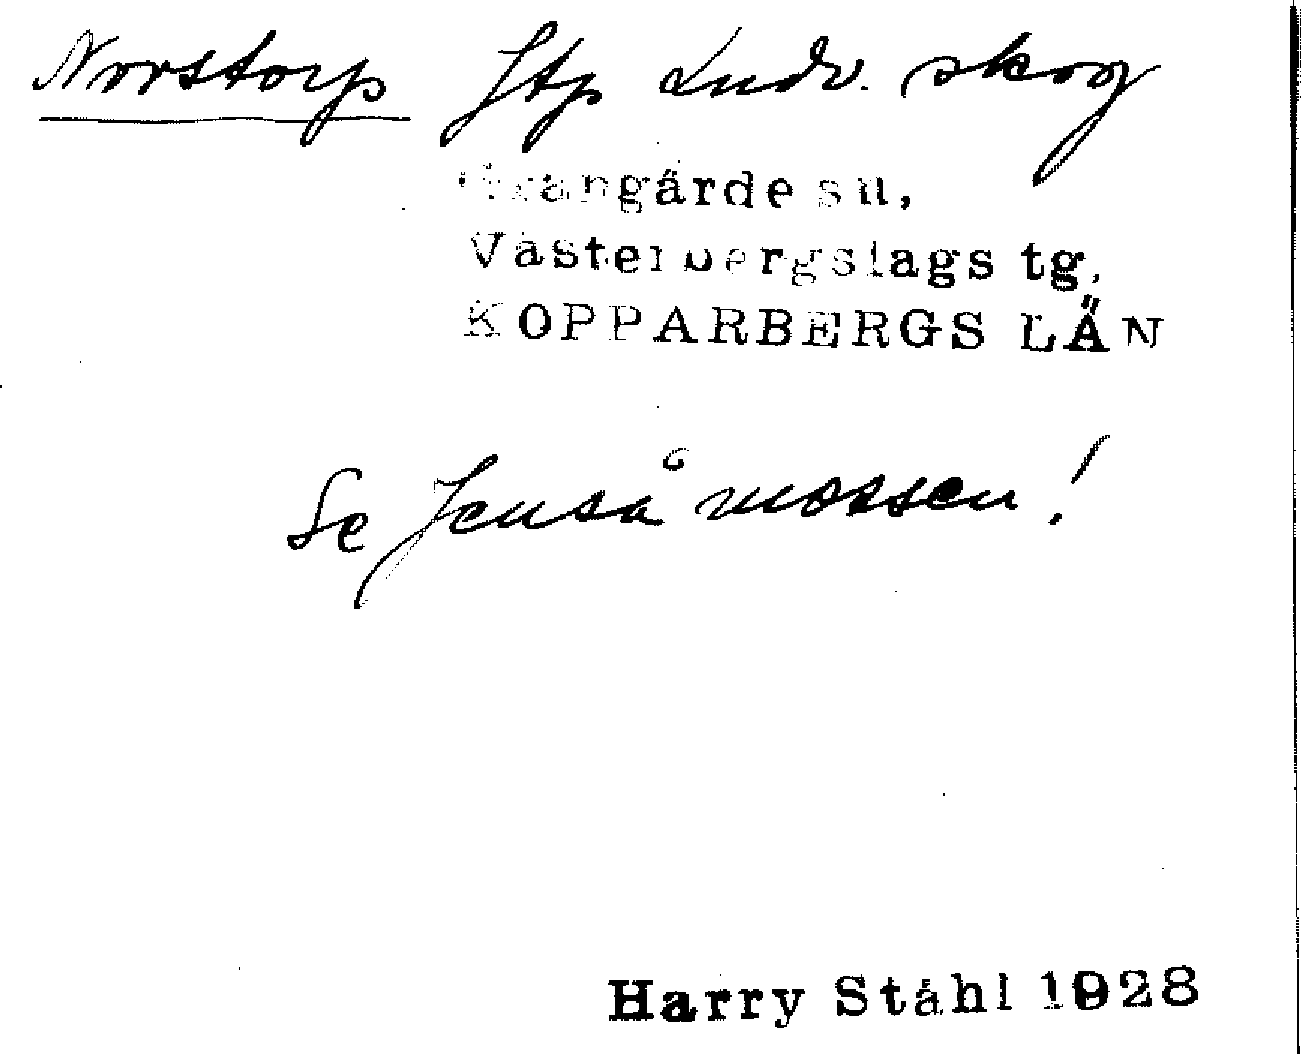 Norstorp Jtp Ludv. skog
Grangärde sn,
Västerbergslags tg.
KOPPARBERGS LÄN
Se Jenså mossen!
Harry Ståhl 1928